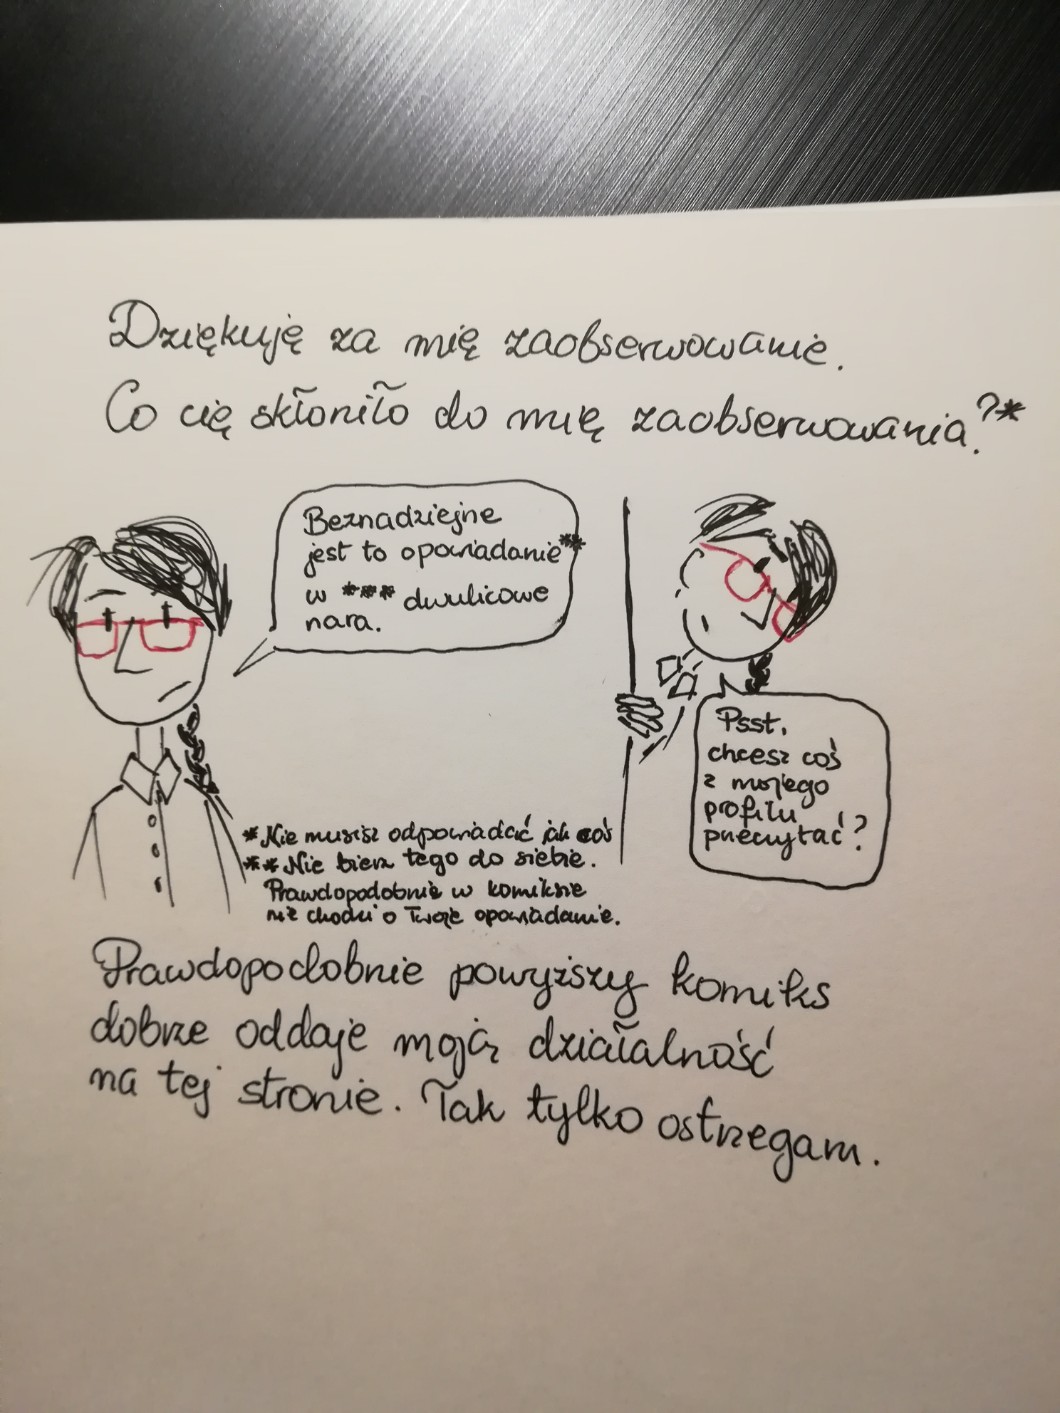 Dziękuję za mię zaobserwowanie.
Co cię skłoniło do mię zaobserwowania?*
Beznadziejne
jest to opowiadanie**
w *** dwulicowe
nara.
Psst,
chcesz coś
z mojego
profilu
przeczytać?
*Nie musisz odpowiadać jak coś
**Nie bierz tego do siebie.
Prawdopodobnie w komiksie
nie chodzi o Twoje opowiadanie.
Prawdopodobnie powyższy komiks
dobrze oddaje moją działalność
na tej stronie. Tak tylko ostrzegam.